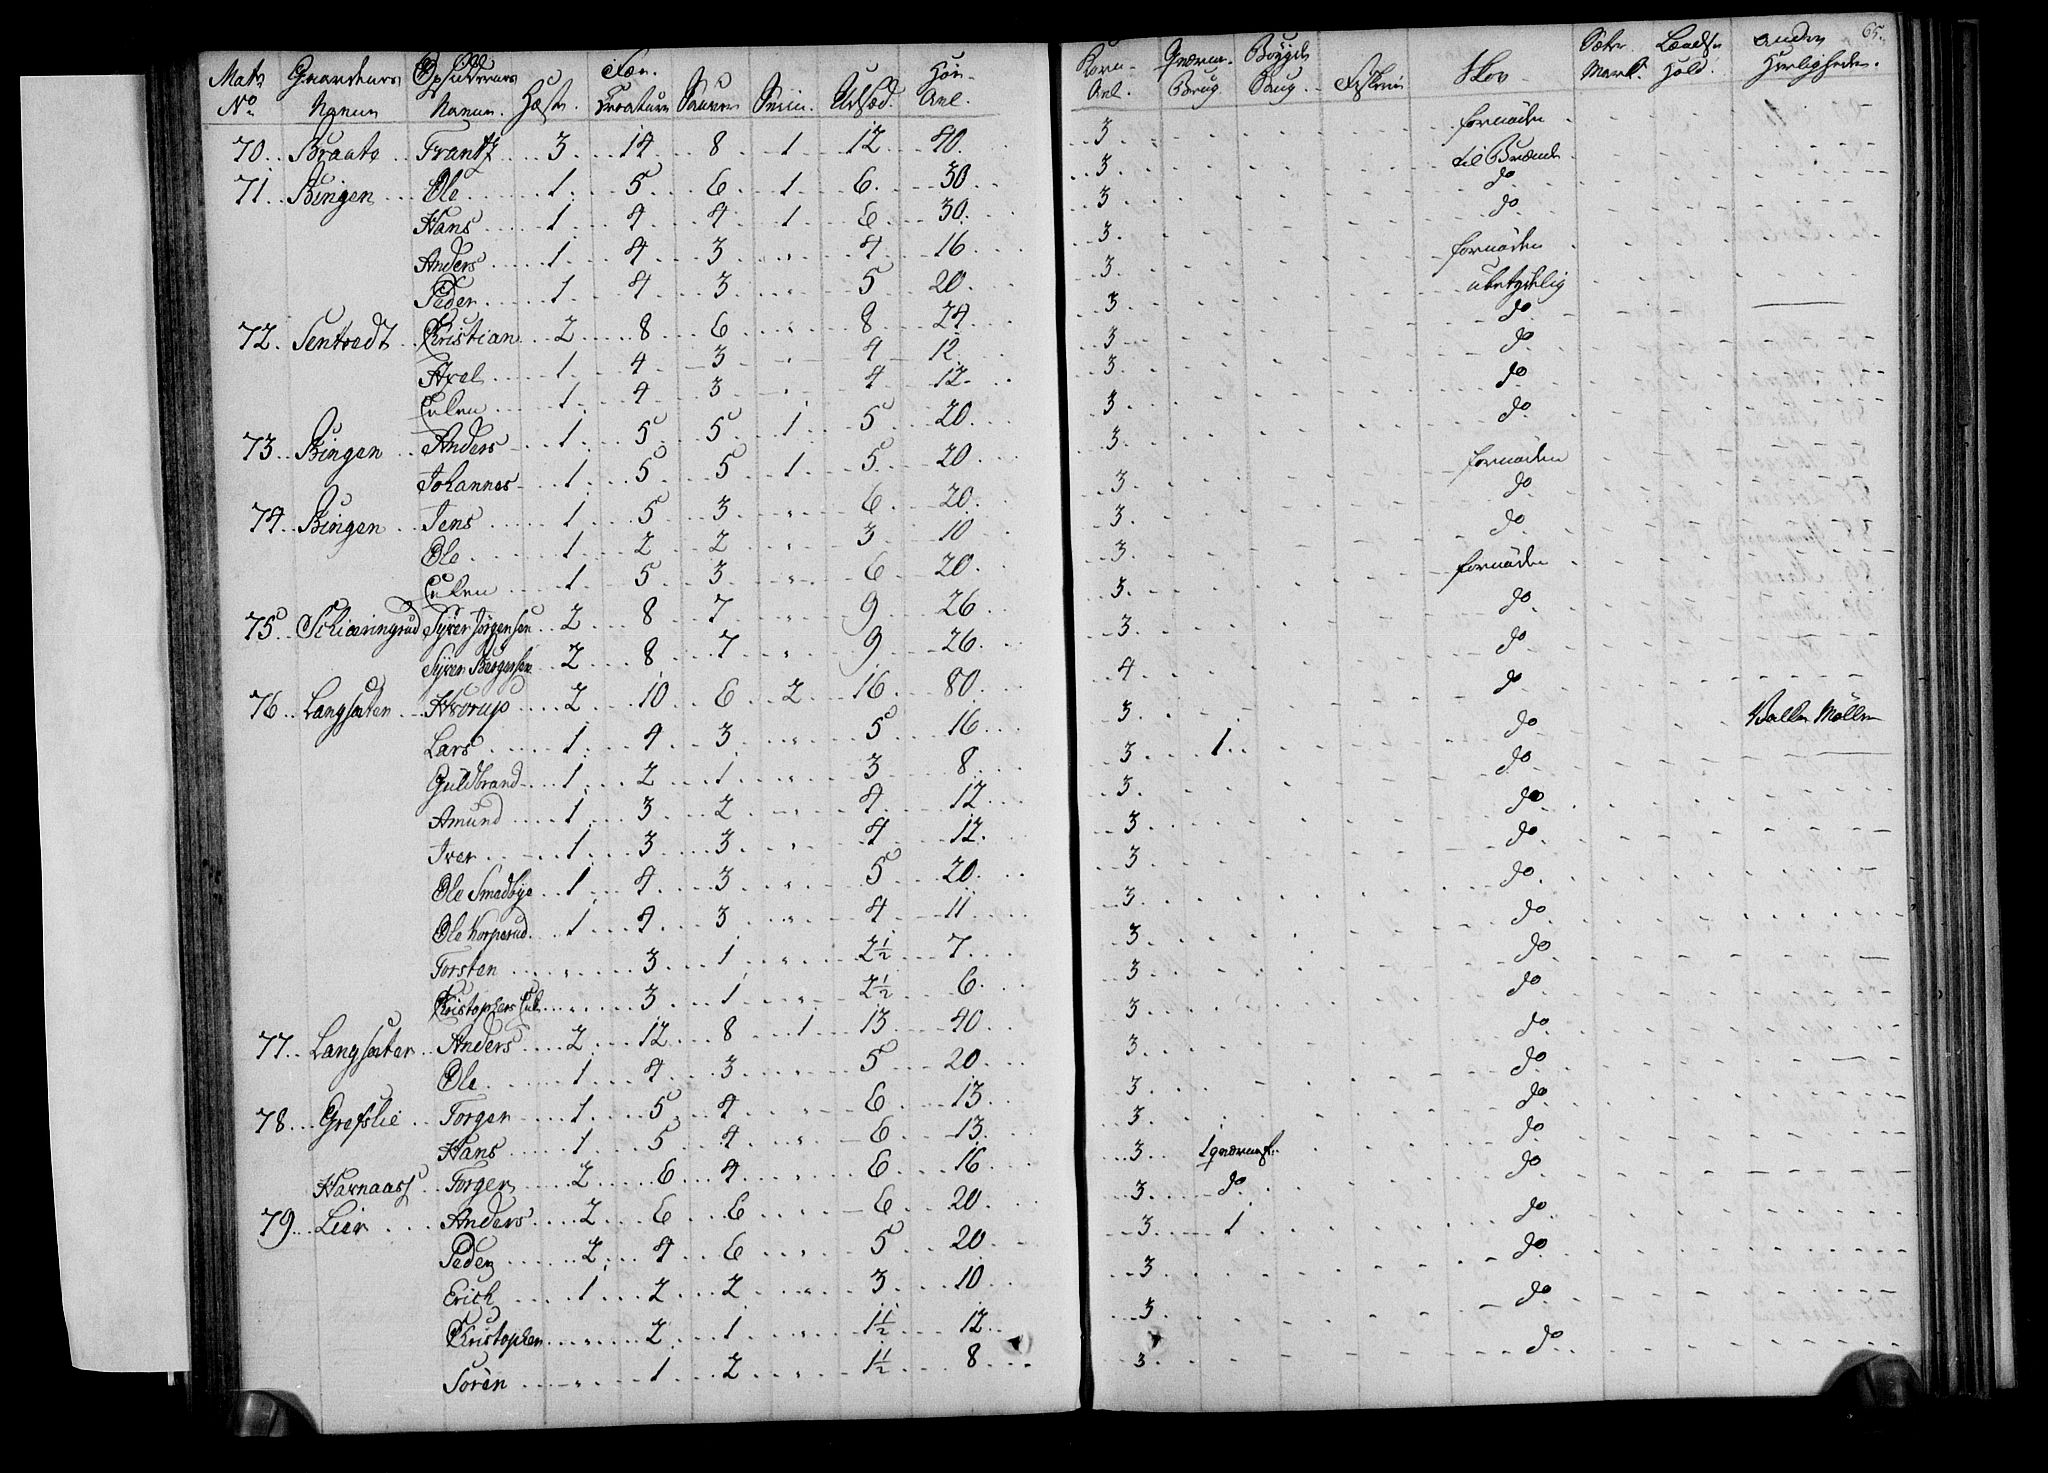 65.
Matr No Gaardenes Nanne Opsiddernes Nanne. Heste. Fæe. Creature Sauer Sviin. Udsæd. Høe- Avl. Korn- Avl. Qværne- Brug. Bøygde Saug. Fiskerie Skov Sæter Mark. Hold. Andre Herligheder.
70. Braate Frantz 3 14 8 1 12 40. 3 fornøden
71. Bingen Ole 1 5 6 1 6 30 3 til Brænde
Hans 1 4 4 1 6 30 3 do
Anders 1 4 3 " 4 16 3 do
Peder 1 4 3 " 5 20 3 fornøden
72. Tentvedt Christian 2 8 6 " 8 24 3 ubetydelig
Axel 1 4 3 " 4 12 3 do
Enken 1 4 3 " 4 12 3 do
73. Bingen Anders 1 5 5 1 5 20 3 do
Johannes 1 5 5 1 5 20 3 do
74. Bingen Jens 1 5 3 " 6 20 3 fornøden
Ole 1 2 2 " 3 10 3 do
Enken 1 5 3 " 6 20 3 do
75. Schiæringrud Syver Jørgensen 2 8 7 " 9 26 3 fornøden
Syver Børgersen 2 8 7 " 9 26 3 do
76. Langsæter Hvorup 2 10 6 2 16 80 4 do
Lars 1 4 3 " 5 16 3 do Møllen
Guldbrand 1 2 1 " 3 8 3 1 do
Amund 1 3 2 " 4 12 3 do
Iver 1 3 3 " 4 12 3 do
Ole Smedbye 1 4 3 " 5 20 3 do
Ole Korperud 1 4 3 " 4 11 3 do
Torsten " 3 1 " 2½ 7 3 do
Christophers Enk " 3 1 " 2½ 6 3 do
77. Langsæter Anders 2 12 8 1 13 40 3 do
Ole 1 4 3 " 5 20 3 do
78. Grefslie Torger 1 5 4 " 6 13 3 do
Hans 1 5 4 " 6 13 3 do
Harnaas Torger 2 6 4 " 6 16 3 1 do
79. Lier Anders 2 6 6 " 6 20 3 do do
Peder 2 4 6 " 5 20 3 1 do
Erich 1 2 2 " 3 10 3 do
Christopher " 2 1 " 1½ 12 3 do
Søren " 1 2 " 1½ 8 3 do